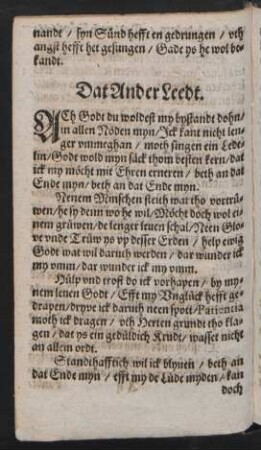 nandt / syn Sünd hefft en gedrungen / vth
angst hefft het gesungen / Gade ys he wol be-
kandt.
Dat Ander Leedt.
ACh Godt du woldest my bystandt dohn/
in allen Nöden myn / Jck kant nicht len-
ger vmmeghan / moth singen ein Lede-
lin / Godt wold myn säck thom besten kern / dat
ick my möcht mit Ehren erneren / beth an dat
Ende myn / beth an dat Ende myn.
Nenem Minschen steith wat tho vortrü-
wen / he sy denn wo he wil / Möcht doch wol ei-
nem grüwen / de lenger leuen schal / Neen Glo-
ve vnde Trüw ys vp desser Erden / help ewig
Godt wat wil daruth werden / dar wunder ick
my vmm / dar wunder ick my vmm.
Hülp vnd trost do ick vorhapen / by my-
nem leuen Godt / Efft my Vnglück hefft ge-
drapen / dryve ick daruth neen spott / Patientia
moth ick dragen / vth Herten grundt tho kla-
gen / dat ys ein gedüldich Krudt / wasset nicht
an allem ordt.
Standthafftich wil ick blyuen / beth an
dat Ende myn / efft my de Lüde myden / kan
doch